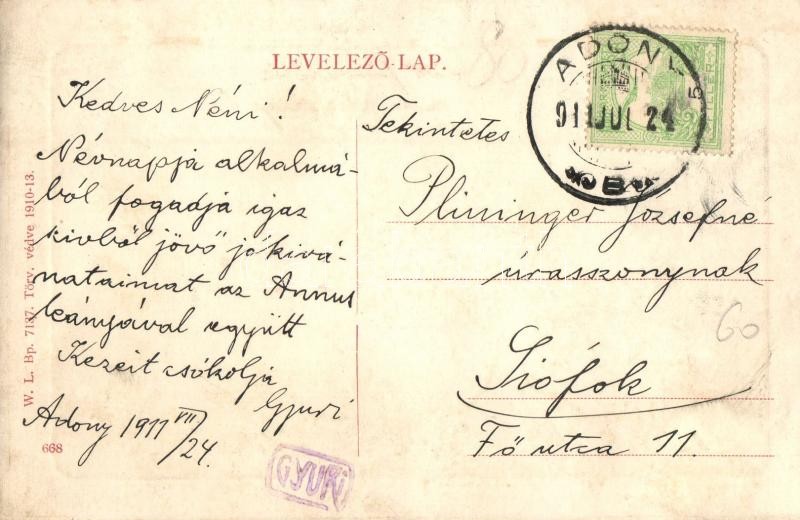 LEVELEZŐ-LAP.
ADONY
911 JUL 24
5
B
Kedves Néni!
Névnapja alkalmá-
ból fogadja igaz
szivből jövő jókivá-
nataimat az Annus
leányával együtt
Kezeit csókolja
Gyuri
Adony 1911 VII/24.
GYURI
Tekintetes
Plininger Józsefné
úrasszonynak
Siófok
Fő utca 11.
60
W. L. Bp. 7137. Törv. védve 1910-13.
668